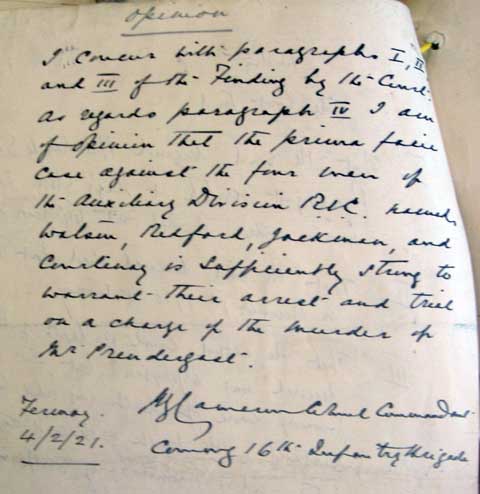 Opinion
I concur with paragraphs I, II
and III of the Finding by the Court.
As regards paragraph IV I am
of opinion that the prima facie
case against the four men of
the Auxiliary Division R.I.C. named,
Watson, Redford, Jackman, and
Courtenay is sufficiently strong to
warrant their arrest and trial
on a charge of the murder of
Mr Prendergast.
Cameron Colonel Commandant
Fermoy.
4/2/21.
Commg 16th Infantry Brigade